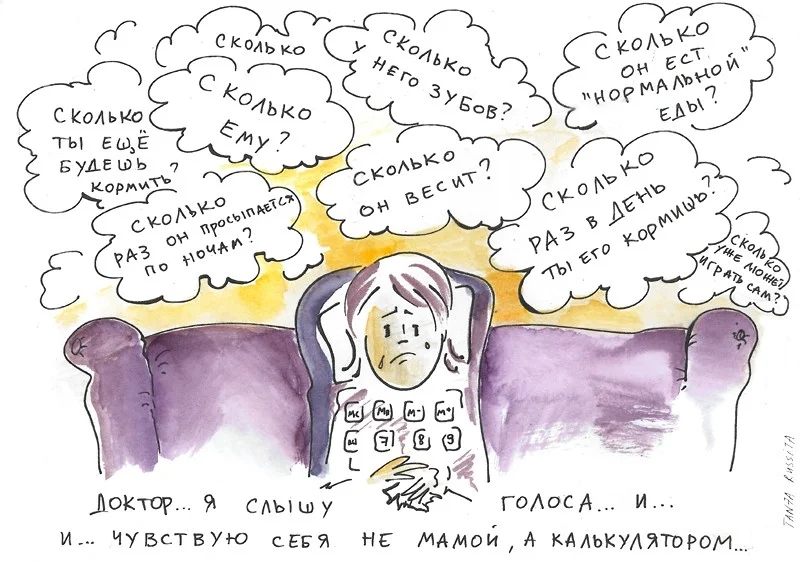 СКОЛЬКО
СКОЛЬКО
ЕМУ?
СКОЛЬКО
У НЕГО ЗУБОВ?
СКОЛЬКО
ОН ЕСТ
"НОРМАЛЬНОЙ"
ЕДЫ?
СКОЛЬКО
ТЫ ЕЩЁ
БУДЕШЬ
КОРМИТЬ?
СКОЛЬКО
РАЗ ОН ПРОСЫПАЕТСЯ
ПО НОЧАМ?
СКОЛЬКО
ОН ВЕСИТ?
СКОЛЬКО
РАЗ В ДЕНЬ
ТЫ ЕГО КОРМИШЬ?
СКОЛЬКО
УЖЕ МОЖЕТ
ИГРАТЬ САМ?
MC MR M- M+
7 8 9
ДОКТОР... Я СЛЫШУ ГОЛОСА... И...
И... ЧУВСТВУЮ СЕБЯ НЕ МАМОЙ, А КАЛЬКУЛЯТОРОМ...
TANJA RUSSITA